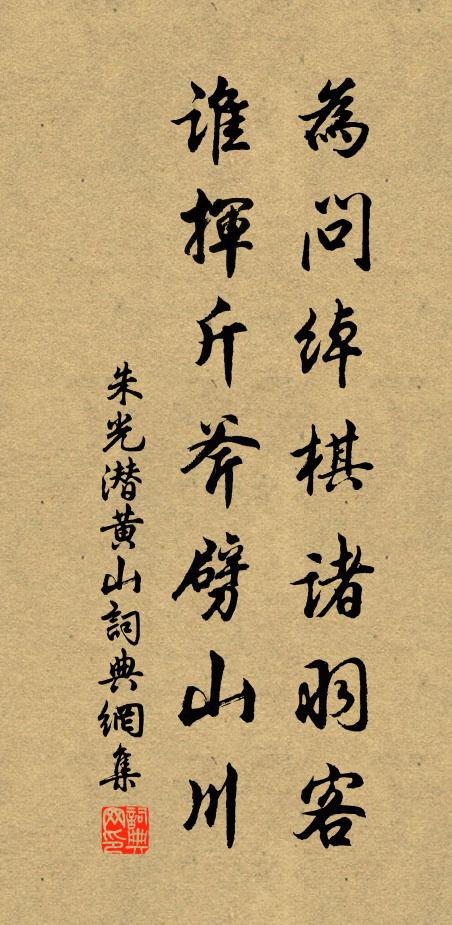 為問綽棋諸羽客
誰揮斤斧劈山川
朱光潜黄山詞典網集
詞典網印